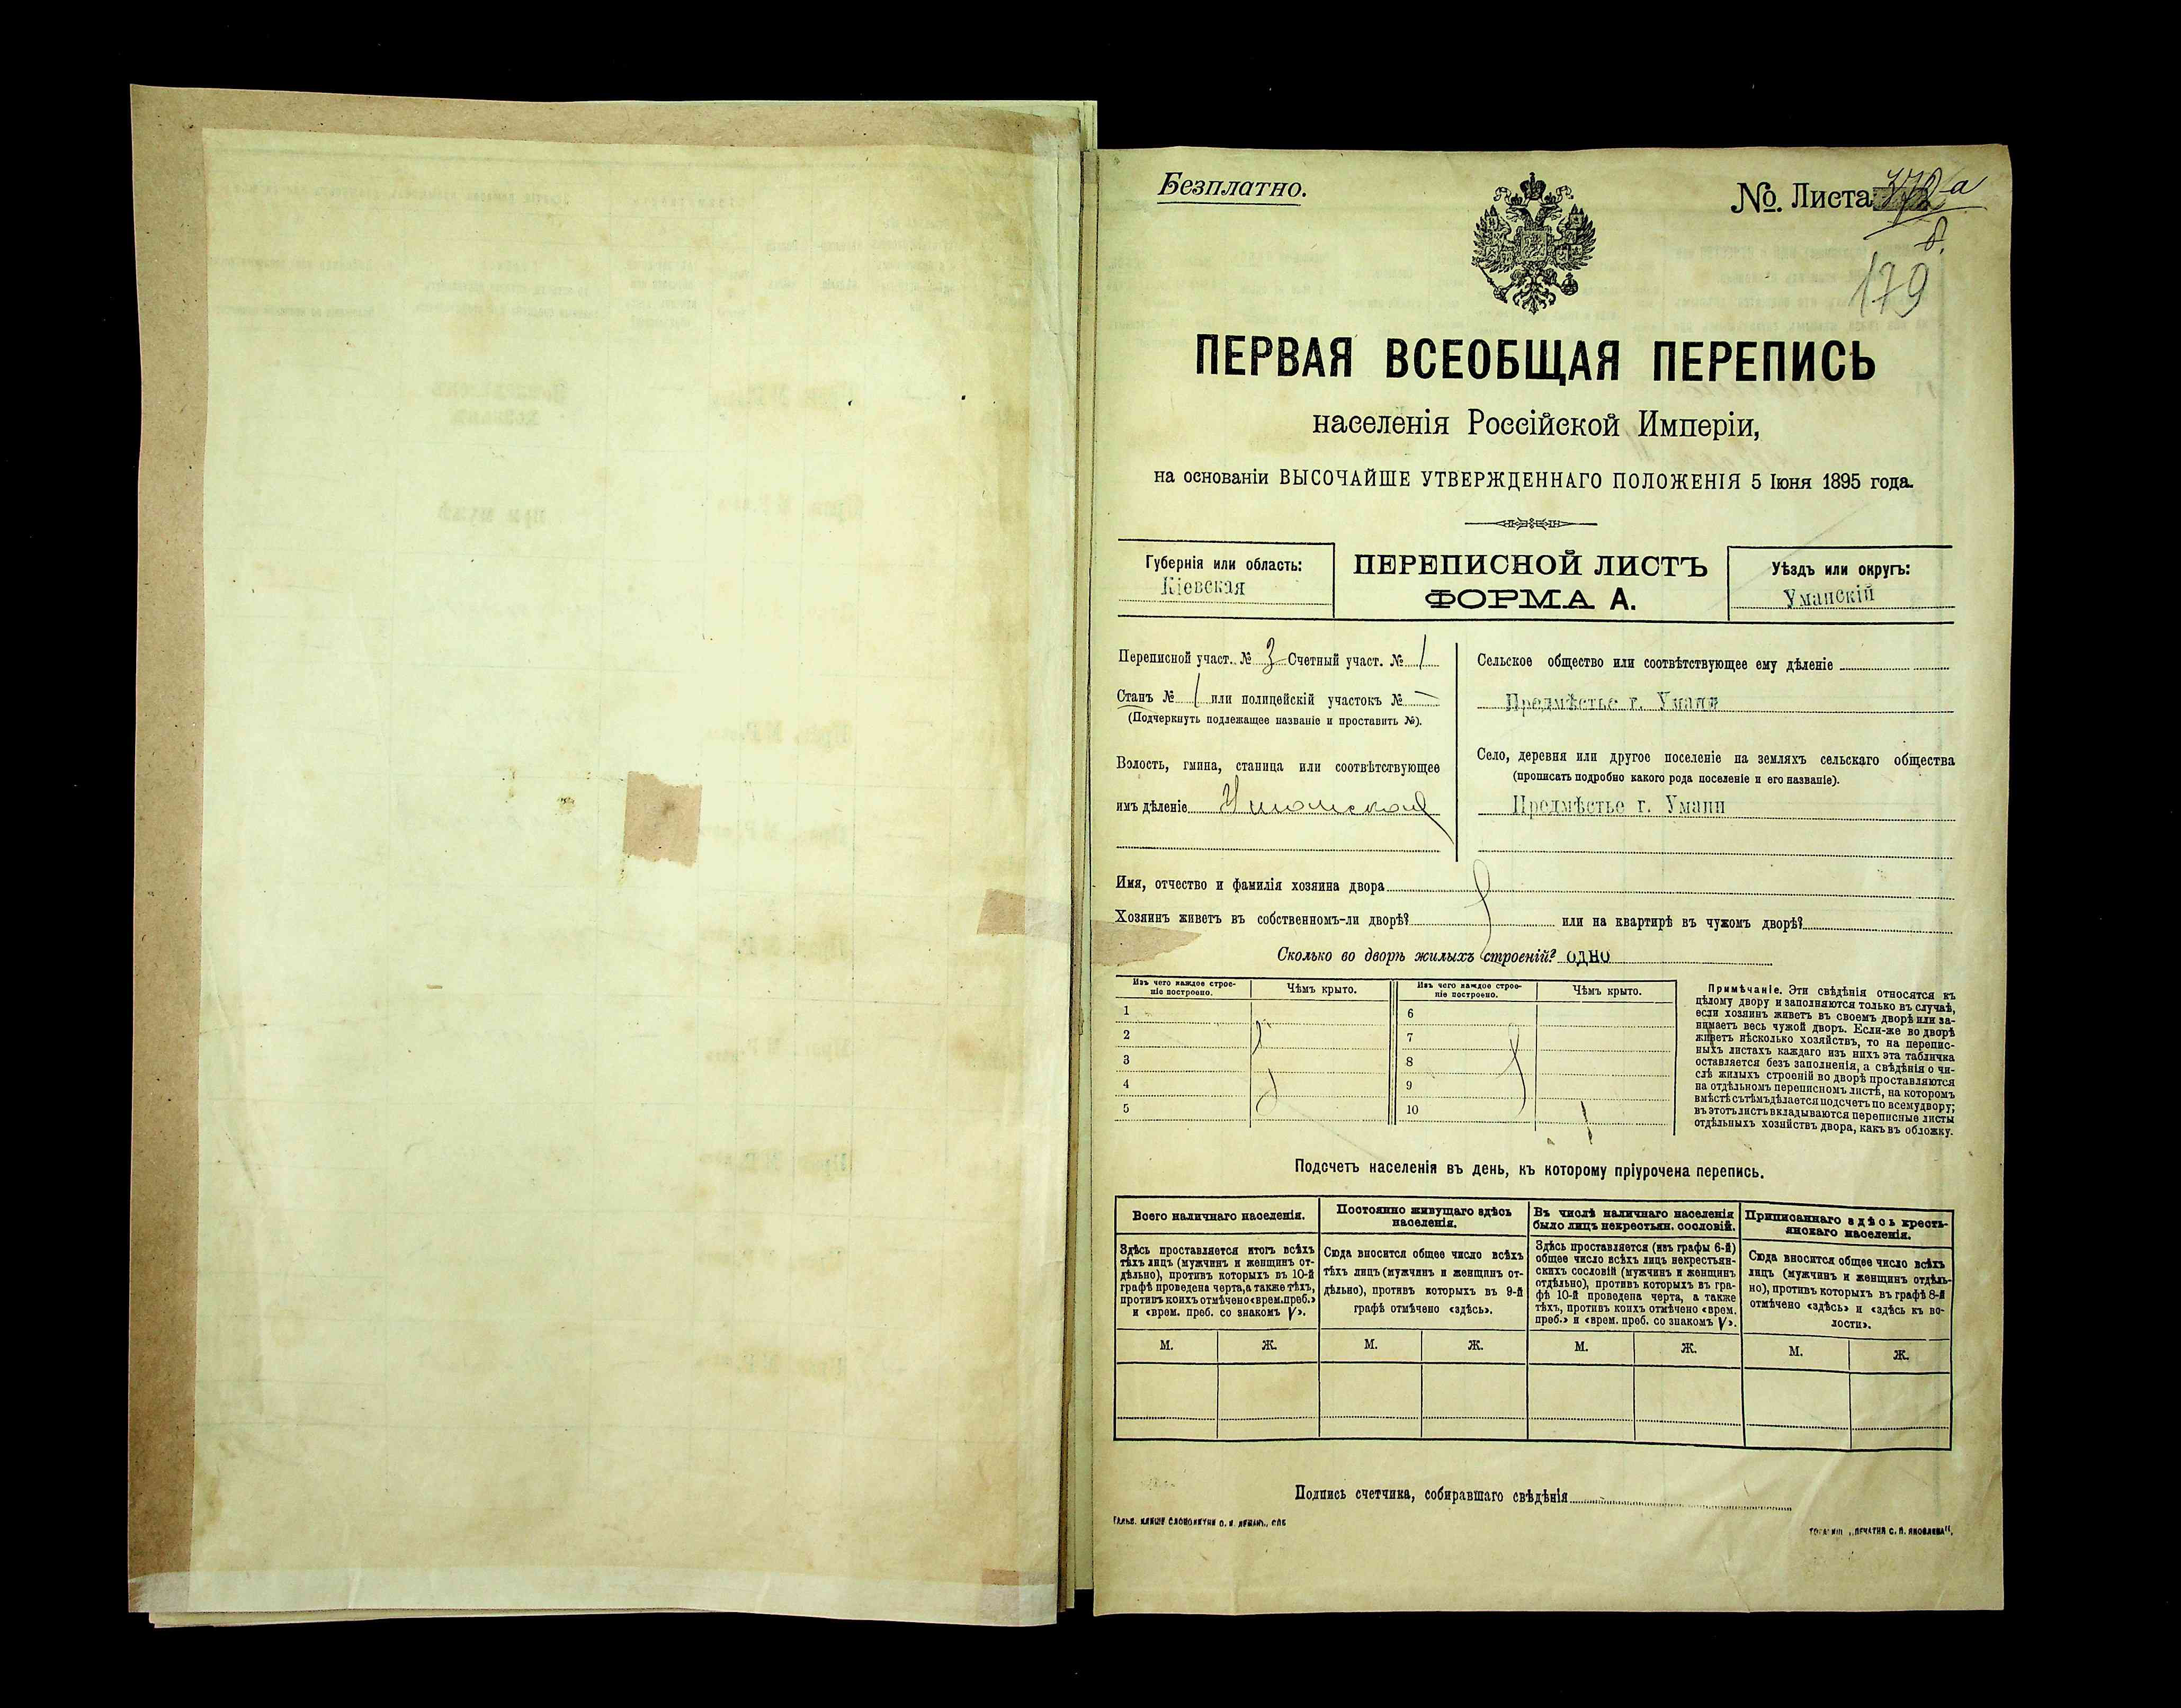 Безплатно.
№. Листа 372 а
б.
179
ПЕРВАЯ ВСЕОБЩАЯ ПЕРЕПИСЬ
населенія Россійской Имперіи,
на основаніи ВЫСОЧАЙШЕ УТВЕРЖДЕННАГО ПОЛОЖЕНІЯ 5 Іюня 1895 года.
Губернія или область:
Кіевская
ПЕРЕПИСНОЙ ЛИСТЪ
ФОРМА А.
Уѣздъ или округъ:
Уманскій
Переписной участ. № 3 Счетный участ. № 1
Станъ № 1 или полицейскій участокъ № —
(Подчеркнуть подлежащее названіе и проставить №).
Волость, гмина, станица или соотвѣтствующее
имъ дѣленіе Уманская
Сельское общество или соотвѣтствующее ему дѣленіе
Предмѣстье г. Умани
Село, деревня или другое поселеніе на земляхъ сельскаго общества
(прописать подробно какого рода поселеніе и его названіе).
Предмѣстье г. Умани
Имя, отчество и фамилія хозяина двора
Хозяинъ живетъ въ собственномъ-ли дворѣ? или на квартирѣ въ чужомъ дворѣ?
Сколько во дворѣ жилыхъ строеній? одно
Изъ чего каждое строе-
ніе построено.
Чѣмъ крыто.
Изъ чего каждое строе-
ніе построено.
Чѣмъ крыто.
1
2
3
4
5
6
7
8
9
10
Примѣчаніе. Эти свѣдѣнія относятся къ
цѣлому двору и заполняются только въ случаѣ,
если хозяинъ живетъ въ своемъ дворѣ или за-
нимаетъ весь чужой дворъ. Если-же во дворѣ
живетъ нѣсколько хозяйствъ, то на перепис-
ныхъ листахъ каждаго изъ нихъ эта табличка
оставляется безъ заполненія, а свѣдѣнія о чи-
слѣ жилыхъ строеній во дворѣ проставляются
на отдѣльномъ переписномъ листѣ, на которомъ
вмѣстѣ съ тѣмъ дѣлается подсчетъ по всему двору;
въ этотъ листъ вкладываются переписные листы
отдѣльныхъ хозяйствъ двора, какъ въ обложку.
Подсчетъ населенія въ день, къ которому пріурочена перепись.
Всего наличнаго населенія.
Здѣсь проставляется итогъ всѣхъ
тѣхъ лицъ (мужчинъ и женщинъ от-
дѣльно), противъ которыхъ въ 10-й
графѣ проведена черта, а также тѣхъ,
противъ коихъ отмѣчено «врем. преб.»
и «врем. преб. со знакомъ V».
Постоянно живущаго здѣсь
населенія.
Сюда вносится общее число всѣхъ
тѣхъ лицъ (мужчинъ и женщинъ от-
дѣльно), противъ которыхъ въ 9-й
графѣ отмѣчено «здѣсь».
Въ числѣ наличнаго населенія
было лицъ некрестьян. сословій.
Здѣсь проставляется (изъ графы 6-й)
общее число всѣхъ лицъ некрестьян-
скихъ сословій (мужчинъ и женщинъ
отдѣльно), противъ которыхъ въ гра-
фѣ 10-й проведена черта, а также
тѣхъ, противъ коихъ отмѣчено «врем.
преб.» и «врем. преб. со знакомъ V».
Приписаннаго здѣсь кресть-
янскаго населенія.
Сюда вносится общее число всѣхъ
лицъ (мужчинъ и женщинъ отдѣль-
но), противъ которыхъ въ графѣ 8-й
отмѣчено «здѣсь» и «здѣсь къ во-
лости».
М. Ж. М. Ж. М. Ж. М. Ж.
Подпись счетчика, собиравшаго свѣдѣнія